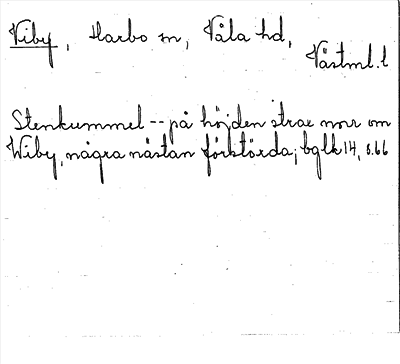 Viby, Harbo sn, Våla hd,
Västml. l
Stenkummel -- på höjden strax norr om
Wiby, några nästan förstörda; bglk 14, s. 66